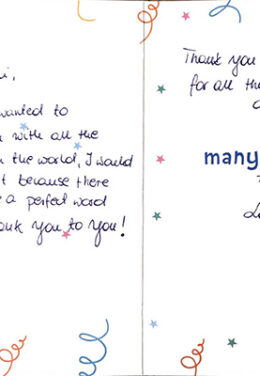 i,
wanted to
with all the
the world, I would
because there
a perfect word
ank you to you!
Thank you
for all the
many